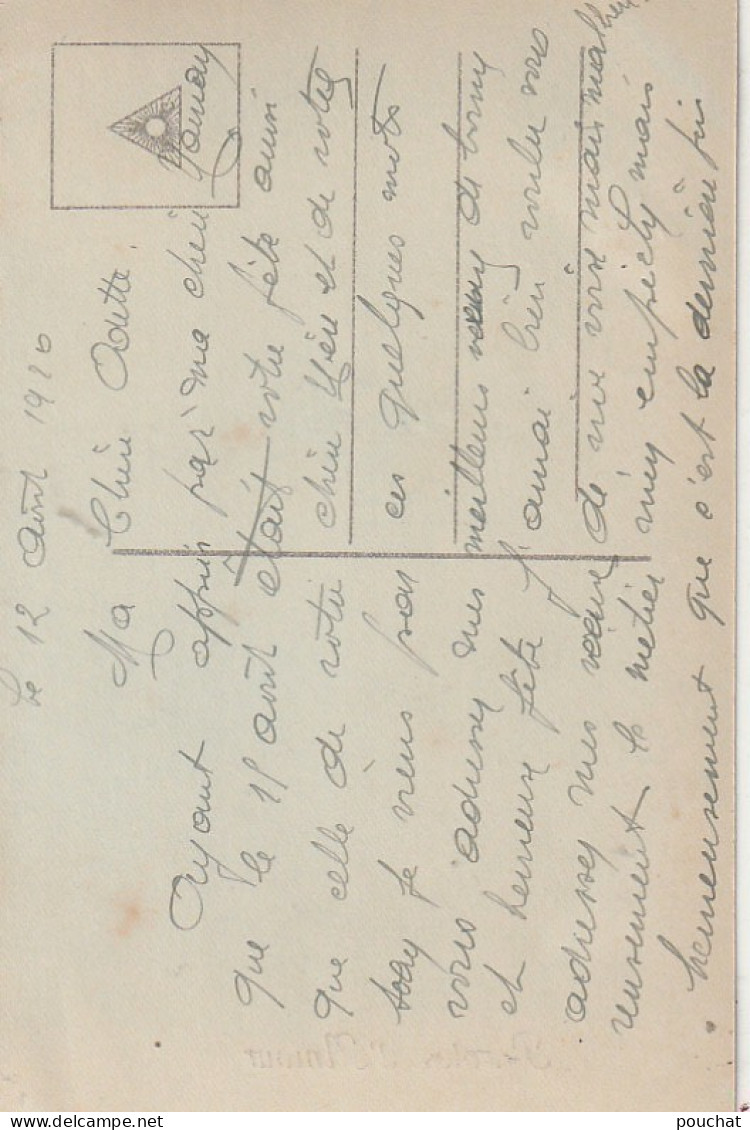 le 12 août 1926
Ma Chère Odette
Ayant appris par ma chère
que le 15 août était votre fête ainsi
que celle de votre chère Mère et de votre
je viens par ces quelques mots
vous adresser mes meilleurs vœux de bonne
et heureuse fête J'aurai bien voulu vous
adresser mes vœux de vive voix mais malheu-
reusement le métier m'y empêche mais
heureusement que c'est la dernière fois
Paroles d'Amour
pouchat